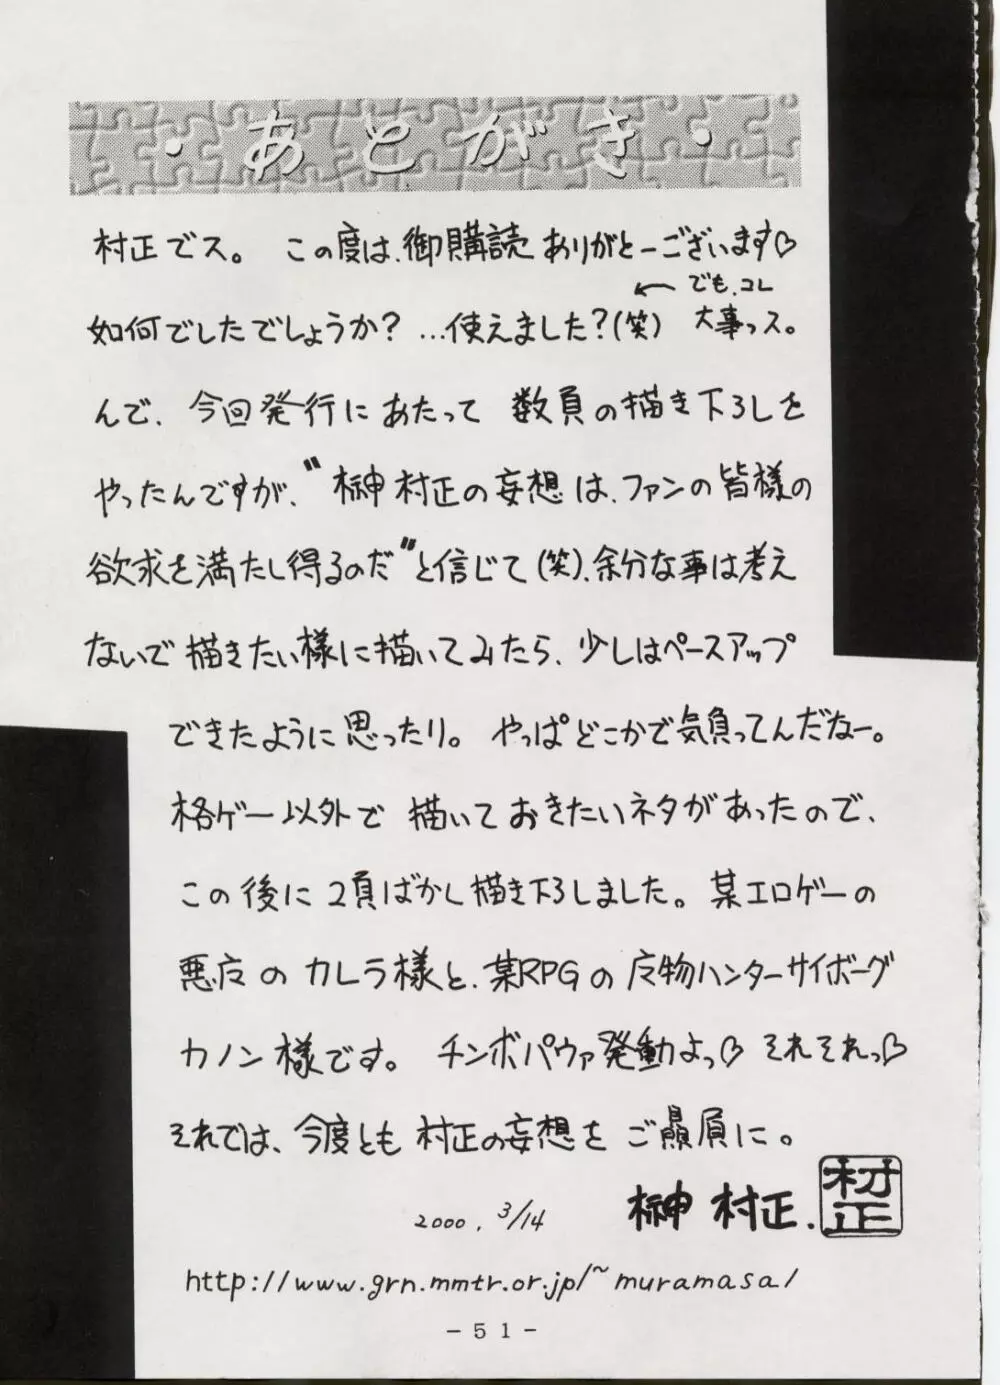 ・あとがき・
村正でス。この度は、御購読ありがとーございます♡
でも、コレ
如何でしたでしょうか？…使えました？(笑) ← 大事っス。
んで、今回発行にあたって 数頁の描き下ろしを
やったんですが、〝榊村正の妄想は、ファンの皆様の
欲求を満たし得るのだ〟と信じて(笑)、余分な事は考え
ないで描きたい様に描いてみたら、少しはペースアップ
できたように思ったり。やっぱどこかで気負ってんだなー。
格ゲー以外で描いておきたいネタがあったので、
この後に2頁ばかし描き下ろしました。某エロゲーの
悪女のカレラ様と、某RPGの魔物ハンターサイボーグ
カノン様です。チンボパウァ発動よっ♡それそれっ♡
それでは、今度とも村正の妄想をご贔屓に。
2000.3/14 榊 村正.
村正
http://www.grn.mmtr.or.jp/~muramasa/
-51-